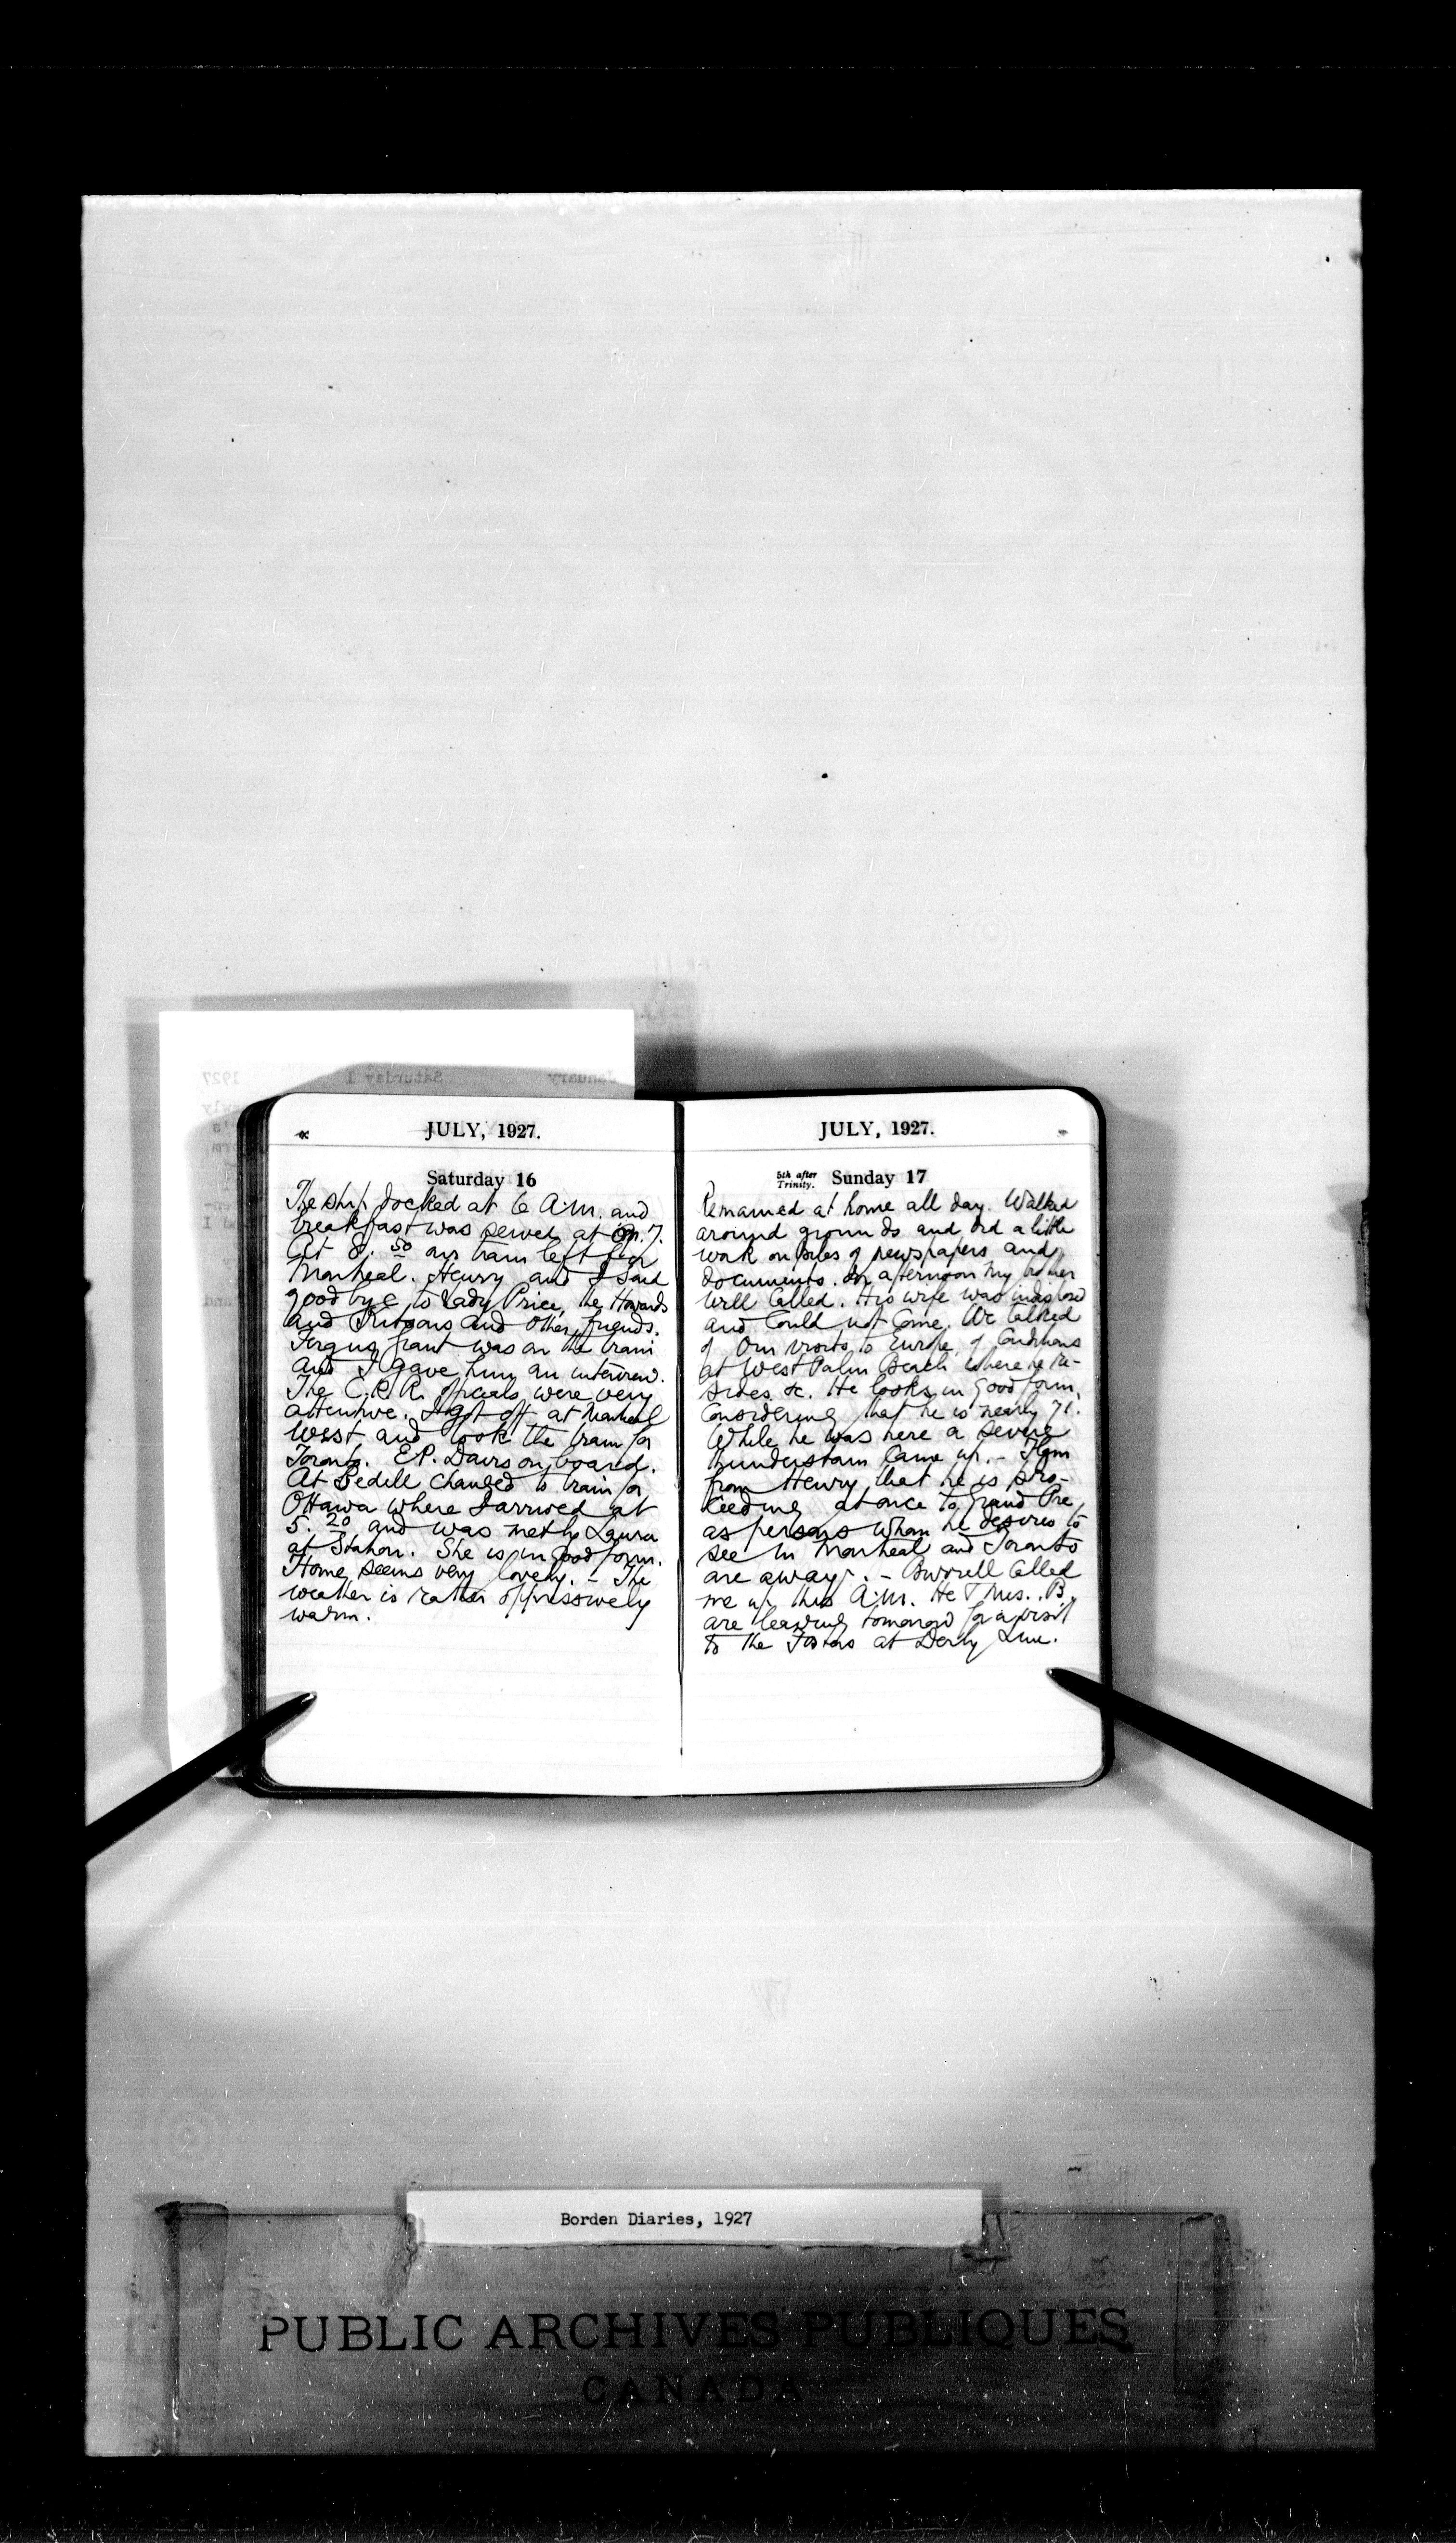 JULY, 1927.
Saturday 16
The ship docked at 6 A.M. and
breakfast was served at 7.
At 8.50 our train left for
Montreal. Henry and I said
goodbye to Lady Price, the Howards
and and other friends.
Fergus Grant was on the train
and I gave him an interview.
The C.P.R. officials were very
attentive. I got off at Montreal
West and took the train for
Toronto. E.P. Davis on board.
At Bedell changed to train for
Ottawa where I arrived at
5.20 and was met by Laura
at Station. She is in good form.
Home seems very lovely. – The
weather is rather oppressively
warm.
JULY, 1927.
5th after Trinity. Sunday 17
Remained at home all day. Walked
around grounds and did a little
work on piles of newspapers and
documents. In afternoon my brother
Will called. His wife was indisposed
and could not come. We talked
of our visits to Europe, of conditions
at West Palm Beach where he re-
sides &c. He looks in good form,
considering that he is nearly 71.
While he was here a severe
thunderstorm came up. –
from Henry that he is pro-
ceeding at once to Grand Pre,
as persons whom he desires to
see in Montreal and Toronto
are away. – Burrell called
me up this A.M. He & Mrs. B.
are leaving tomorrow for a visit
to the Fosters at Derby Line.
January Saturday 1 1927
Borden Diaries, 1927
PUBLIC ARCHIVES PUBLIQUES
CANADA